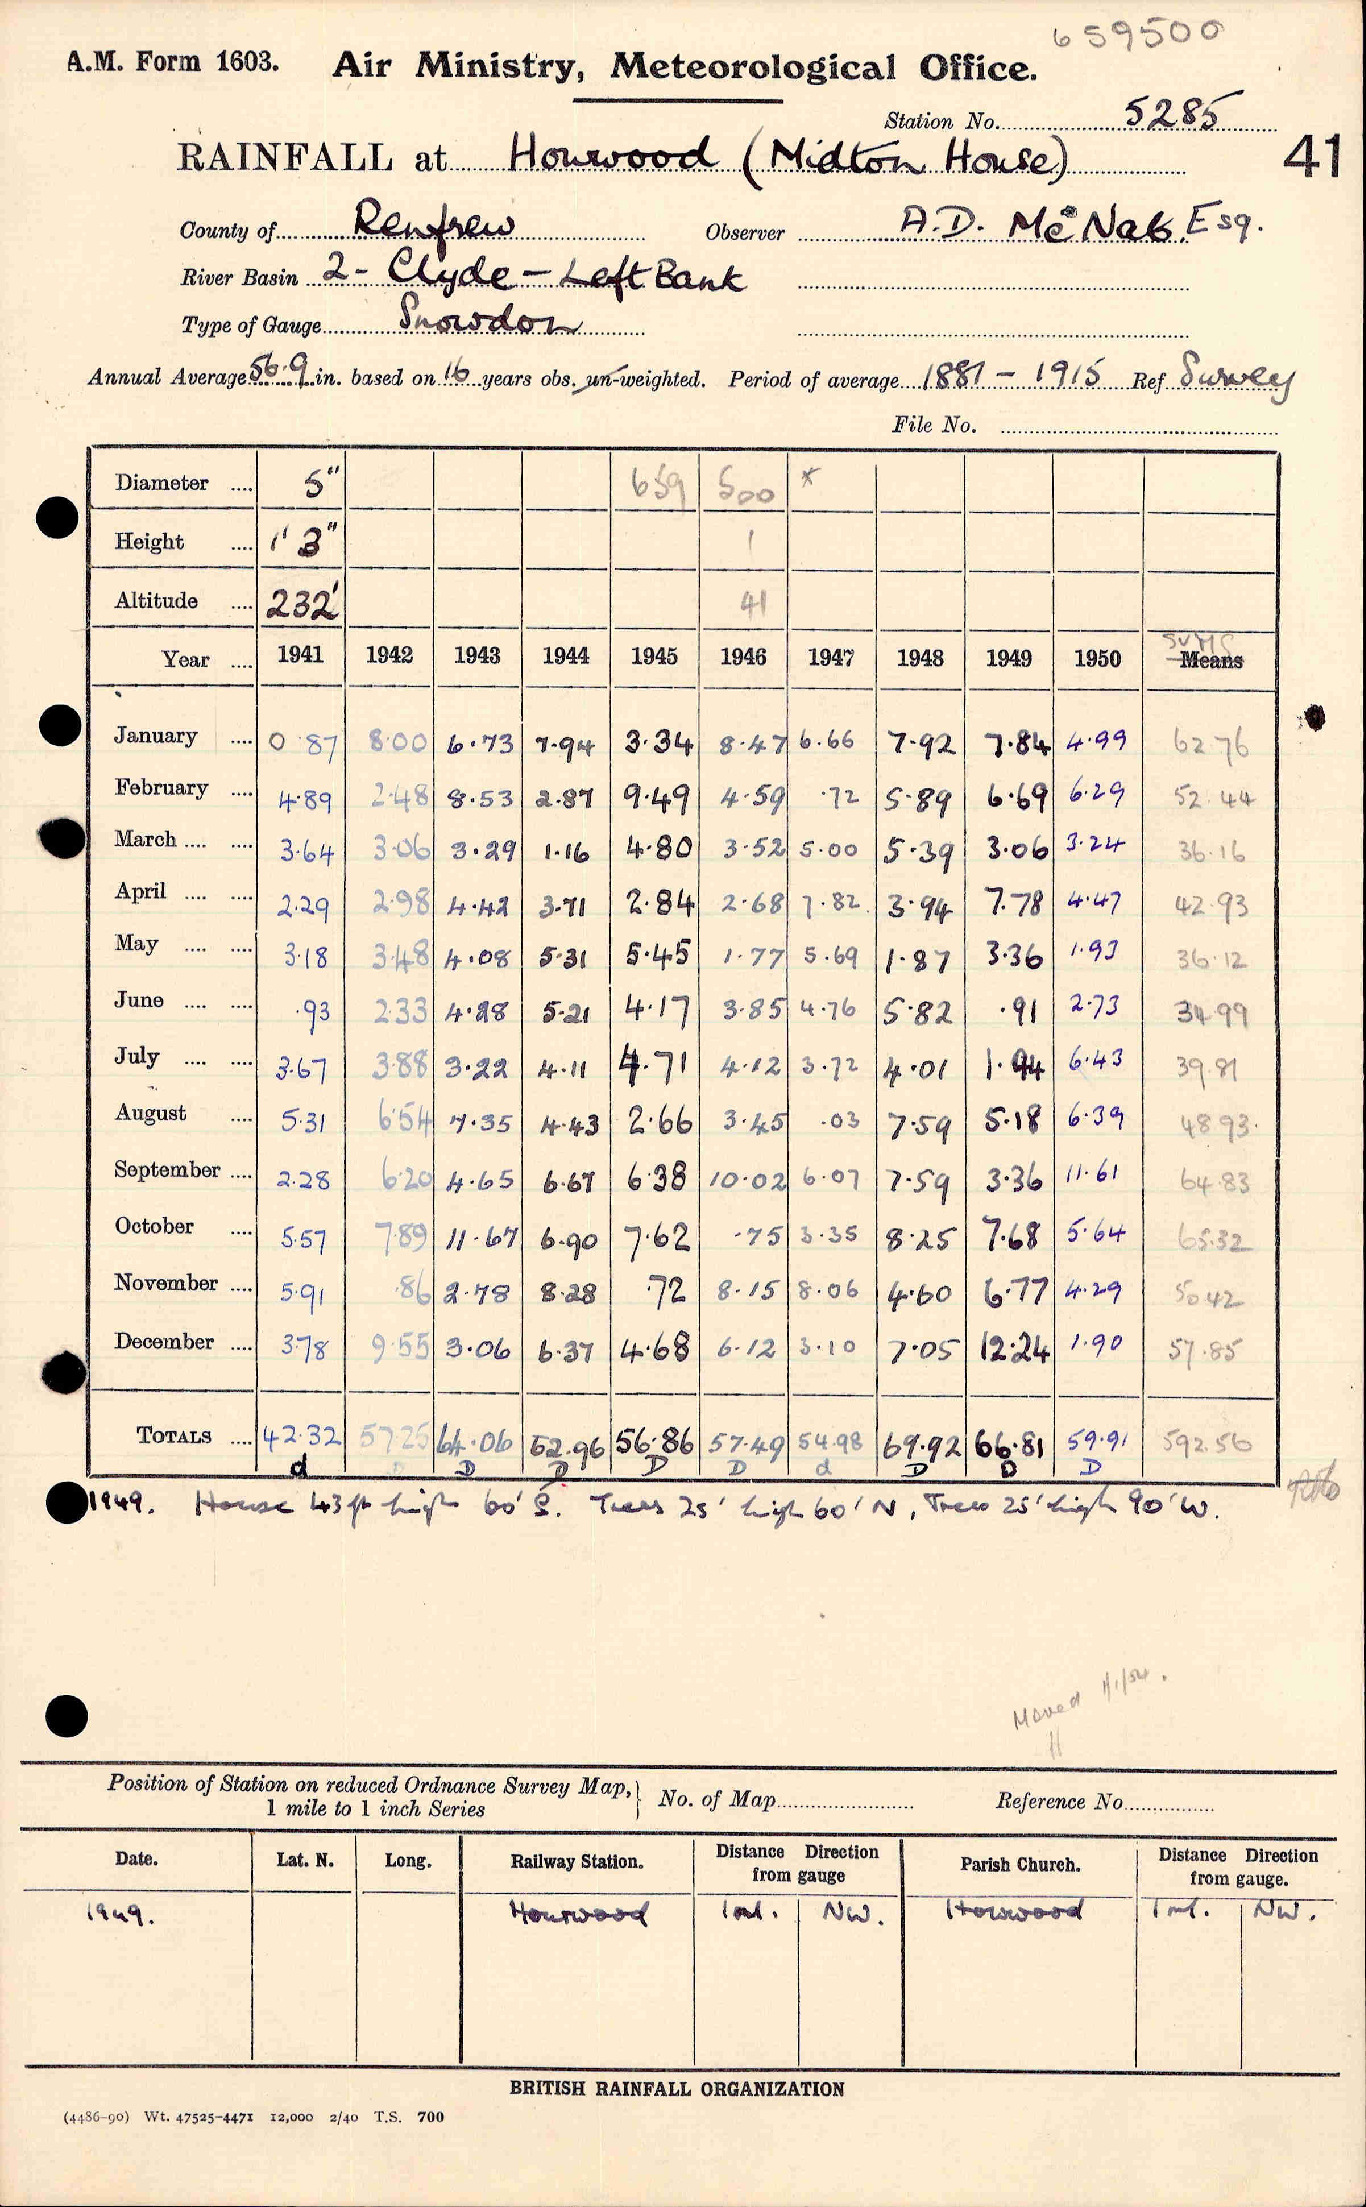 659500
A.M. Form 1603. Air Ministry, Meteorological Office.
Station No. 5285
RAINFALL at Howwood (Midton House) 41
County of Renfrew Observer A.D. McNab. Esq.
River Basin 2 - Clyde - Left Bank
Type of Gauge Snowdon
Annual Average 56.9 in. based on 16 years obs. un-weighted. Period of average 1881 - 1915 Ref Survey
File No.
Diameter 5" 659 500 *
Height 1' 3" 1
Altitude 232' 41
Year 1941 1942 1943 1944 1945 1946 1947 1948 1949 1950 Means SUMS
January 0.87 8.00 6.73 7.94 3.34 8.47 6.66 7.92 7.84 4.99 62.76
February 4.89 2.48 8.53 2.87 9.49 4.59 .72 5.89 6.69 6.29 52.44
March 3.64 3.06 3.29 1.16 4.80 3.52 5.00 5.39 3.06 3.24 36.16
April 2.29 2.98 4.42 3.71 2.84 2.68 7.82 3.94 7.78 4.47 42.93
May 3.18 3.48 4.08 5.31 5.45 1.77 5.69 1.87 3.36 1.93 36.12
June .93 2.33 4.28 5.21 4.17 3.85 4.76 5.82 .91 2.73 34.99
July 3.67 3.88 3.22 4.11 4.71 4.12 3.72 4.01 1.94 6.43 39.81
August 5.31 6.54 7.35 4.43 2.66 3.45 .03 7.59 5.18 6.39 48.93
September 2.28 6.20 4.65 6.67 6.38 10.02 6.07 7.59 3.36 11.61 64.83
October 5.57 7.89 11.67 6.90 7.62 .75 3.35 8.25 7.68 5.64 65.32
November 5.91 .86 2.78 8.28 .72 8.15 8.06 4.60 6.77 4.29 50.42
December 3.78 9.55 3.06 6.37 4.68 6.12 3.10 7.05 12.24 1.90 57.85
TOTALS 42.32 57.25 64.06 62.96 56.86 57.49 54.98 69.92 66.81 59.91 592.56
d D D D D D d D D D
1949. House 43 ft high 60' S. Trees 25' high 60' N, Trees 25' high 90' W.
Moved
Position of Station on reduced Ordnance Survey Map, 1 mile to 1 inch Series No. of Map Reference No
Date. Lat. N. Long. Railway Station. Distance Direction from gauge Parish Church. Distance Direction from gauge.
1949. Howwood 1 ml. NW. Howwood 1 ml. NW.
BRITISH RAINFALL ORGANIZATION
(4486-90) Wt. 47525-4471 12,000 2/40 T.S. 700